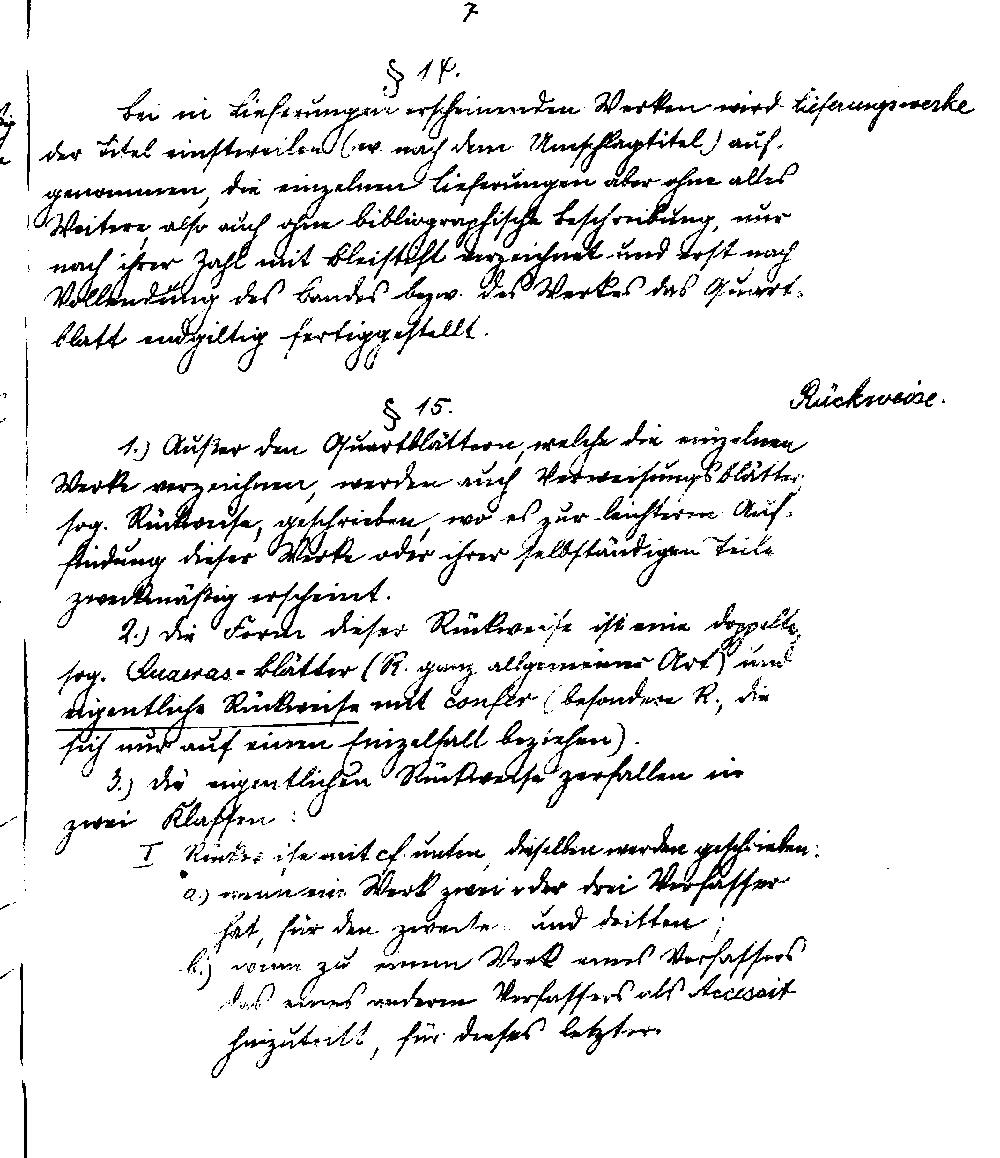 7
§ 14.
Bei in Lieferungen erscheinenden Werken wird Lieferungswerke
der Titel einstweilen (ev. nach dem Umschlagtitel) auf-
genommen, die einzelnen Lieferungen aber ohne alles
Weitere, also auch ohne bibliographische Beschreibung, nur
nach ihrer Zahl mit Bleistift verzeichnet und erst nach
Vollendung des Bandes bezw. des Werkes das Quart-
blatt endgiltig fertiggestellt.
Rückweise.
§ 15.
1.) Außer den Quartblättern, welche die einzelnen
Werke verzeichnen, werden auch Verweisungsblätter,
sog. Rückweise, geschrieben, wo es zur leichteren Auf-
findung dieser Werke oder ihrer selbständigen Teile
zweckmäßig erscheint.
2.) Die Form dieser Rückweise ist eine doppelte,
sog. Quaeras-Blätter (R. ganz allgemeiner Art) und
eigentliche Rückweise mit confer (besondere R., die
sich nur auf einen Einzelfall beziehen).
3.) Die eigentlichen Rückweise zerfallen in
zwei Klassen:
I Rückweise mit cf. unten, dieselben werden geschrieben:
a.) wenn ein Werk zwei oder drei Verfasser
hat, für den zweiten und dritten;
b.) wenn zu einem Werk eines Verfassers
das eines anderen Verfassers als Accessit
hinzutritt, für dieses letztere